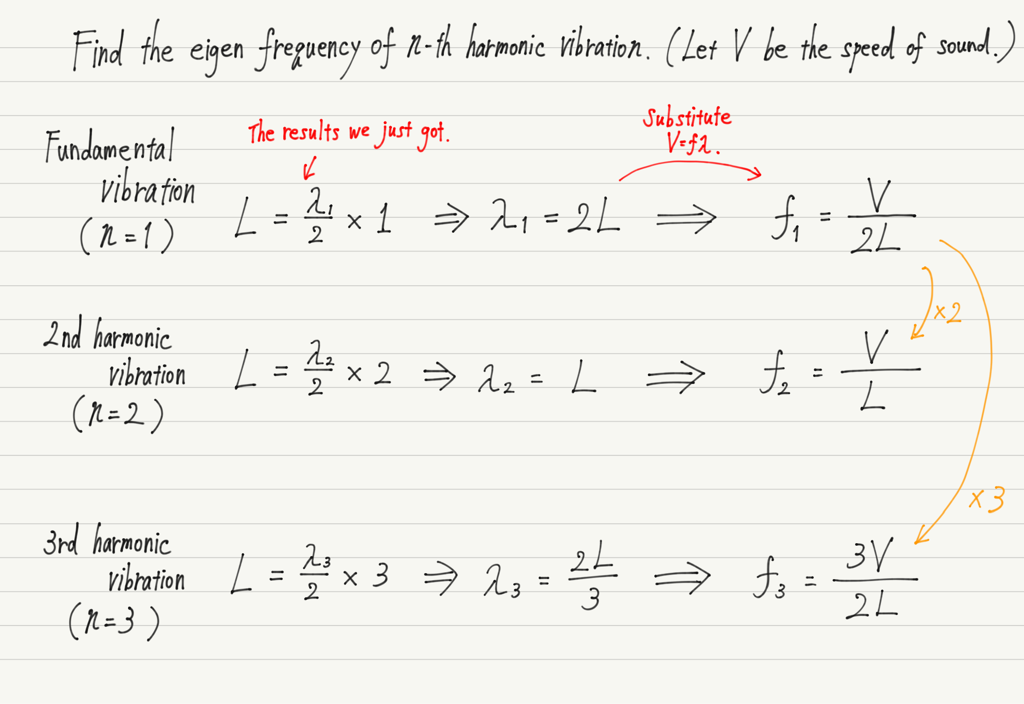 Find the eigen frequency of n-th harmonic vibration. (Let V be the speed of sound.)
The results we just got.
Substitute
V=fλ.
Fundamental
vibration
(n=1)
L = λ₁/2 × 1 ⇒ λ₁ = 2L ⟹ f₁ = V/2L
×2
2nd harmonic
vibration
(n=2)
L = λ₂/2 × 2 ⇒ λ₂ = L ⟹ f₂ = V/L
×3
3rd harmonic
vibration
(n=3)
L = λ₃/2 × 3 ⇒ λ₃ = 2L/3 ⟹ f₃ = 3V/2L